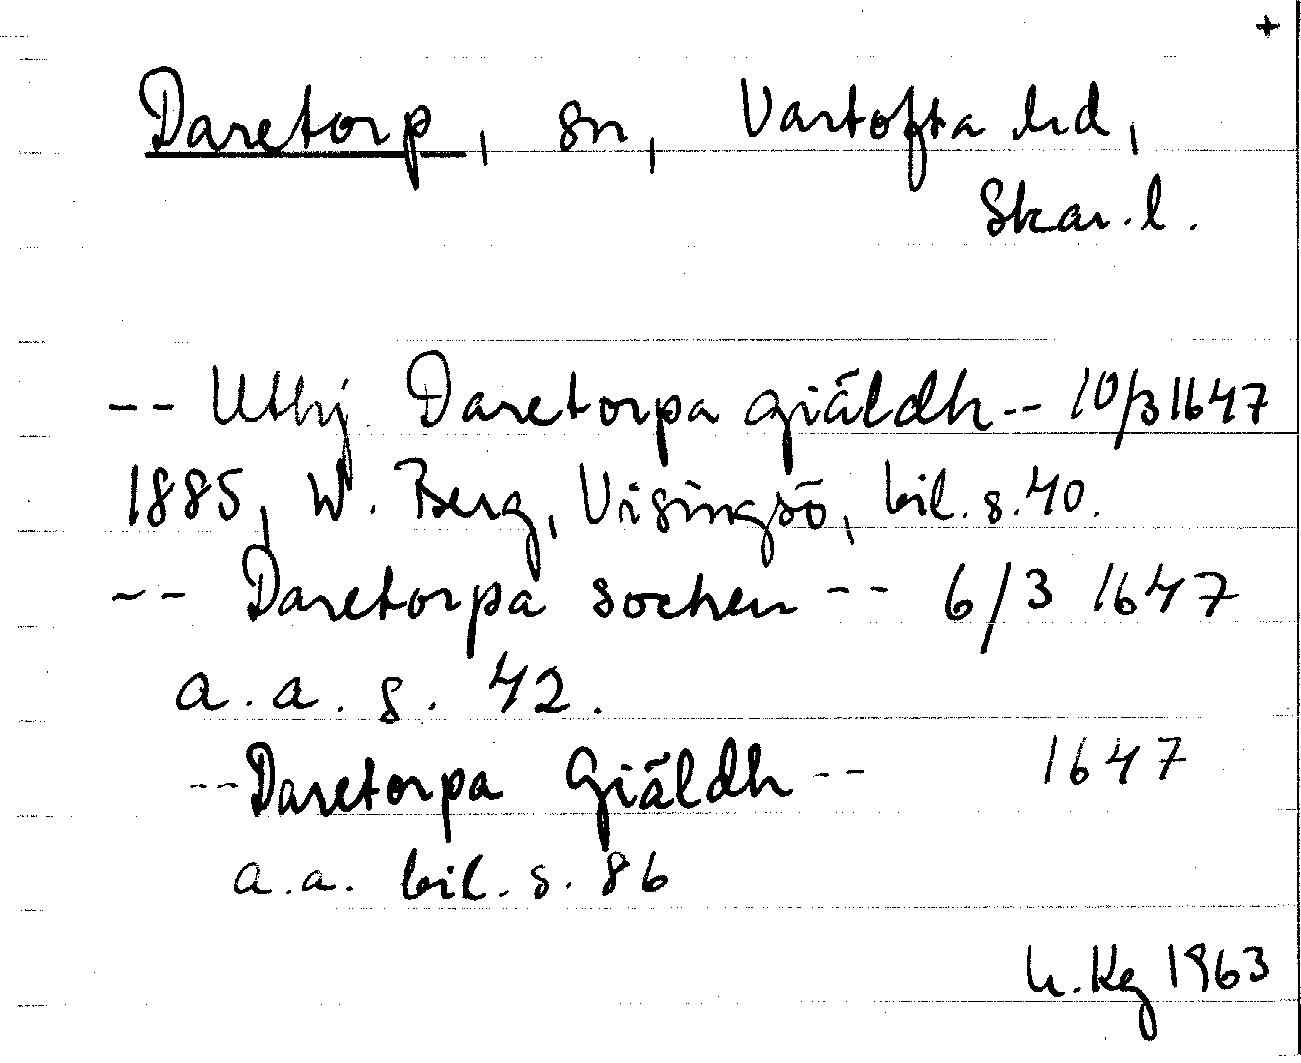 +
Daretorp, sn, Vartofta hd,
Skar.l.
-- Uthj Daretorpa giäldh -- 10/3 1647
1885, W. Berg, Visingsö, bil. s. 40.
-- Daretorpa sochen -- 6/3 1647
a.a. s. 42.
-- Daretorpa Giäldh -- 1647
a.a. bil. s. 86
h. Kg 1963